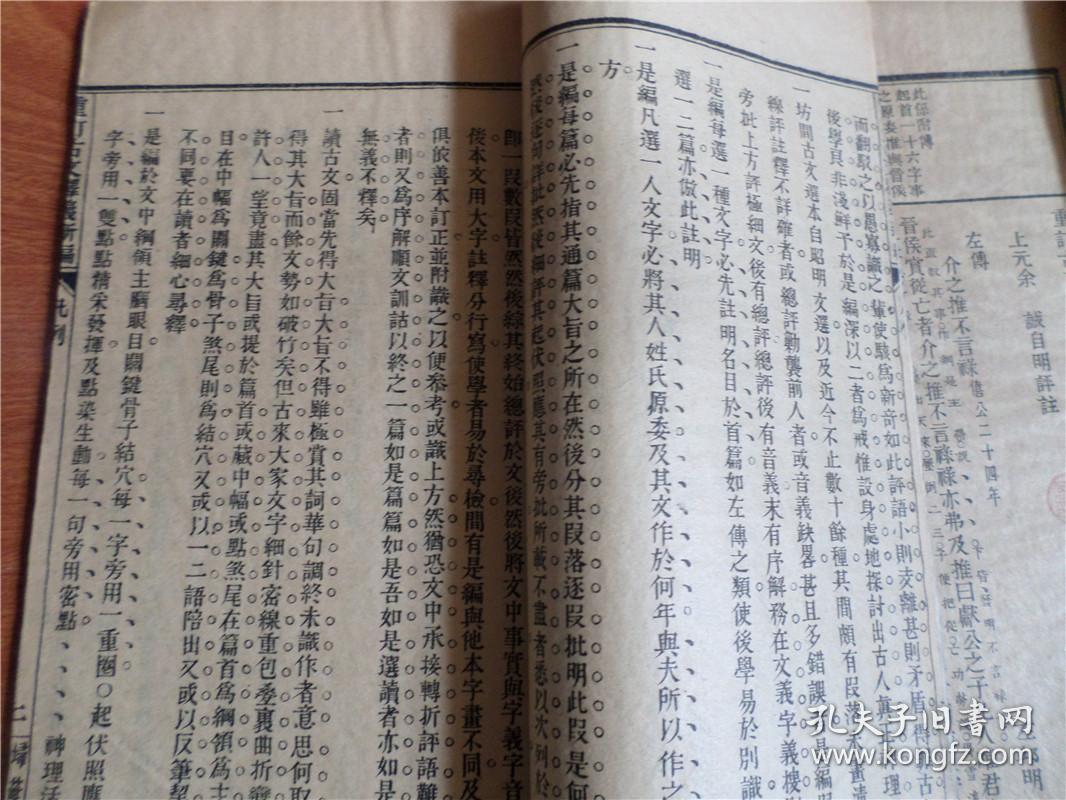 此係附傳
起首一十六字事
之原委推與晉侯
上元余　誠自明評註
左傳
介之推不言祿僖公二十四年
晉侯賞從亡者介之推不言祿祿亦弗及推曰獻公之子九人君
而翻駁之以愚寡識之輩使駭為新奇如此評語小則支離甚則矛盾得
後學具非淺鮮予於是編深以二者為戒惟設身處地探討出古人
一坊間古文選本自昭明文選以及近今不止數十餘種其間頗有段落
線評註釋不詳確者或總評勦襲前人者或音義缺畧甚且多錯誤是編
旁批上方評極細文後有總評總評後有音義末有序解務在文義字義
一是編每選一種文字必先註明名目於首篇如左傳之類使後學易於別識
選一二篇亦倣此註明
一是編凡選一人文字必將其人姓氏原委及其文作於何年與夫所以作之
方
一是編每篇必先指其通篇大旨之所在然後分其段落逐段批明此段是何
然後逐句詳批然後細評其起伏照應其有旁批所載不盡者悉以次列於
即一段數段皆然然後綜其終始總評於文後然後將文中事實與字義字音
後本文用大字註釋分行寫使學者易於尋檢間有是編與他本字畫不同及
俱依善本訂正並附識之以便叅考或識上方然猶恐文中承接轉折評語難
者則又為序解順文訓詁以終之一篇如是篇篇如是吾如是選讀者亦如是
無義不釋矣
一讀古文固當先得大旨大旨不得雖極賞其詞華句調終未識作者意思何取
得其大旨而餘文勢如破竹矣但古來大家文字細針密線重包叠裏曲折變
許人一望竟盡其大旨或提於篇首或藏中幅或點煞尾在篇首為綱領為主
目在中幅為關鍵為骨子煞尾則為結穴又或以一二語陪出又或以反筆挈
不同要在讀者細心尋釋
一是編於文中綱領主腦眼目關鍵骨子結穴每一字旁用一重圈○起伏照應
字旁用一雙點點精采發揮及點染生動每一句旁用密點、、、、神理活
重訂古文釋義新編
凡例
二
孔夫子旧书网
www.kongfz.com